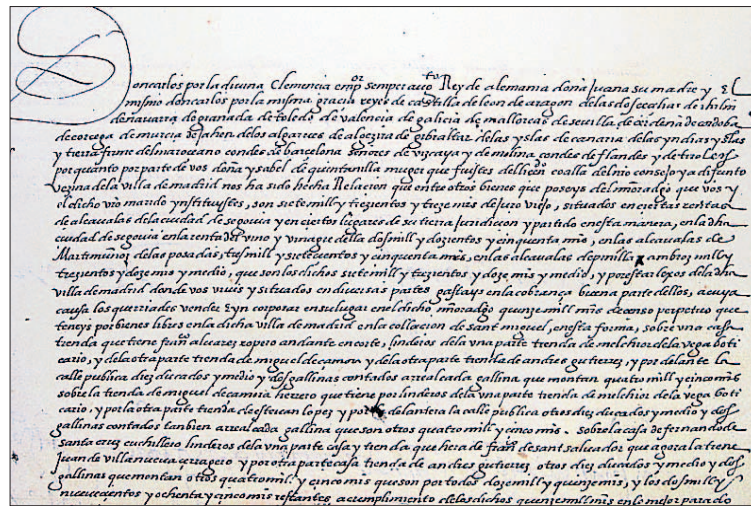 Don carlos por la divina Clemencia emp or semper augto Rey de alemania doña Juana su madre y El
mismo don carlos por la misma gracia reyes de castilla de leon de aragon de las dos secilias de iherusalem
de navarra de granada de toledo de valencia de galicia de mallorcas de sevilla de cerdeña de cordoba
de corcega de murcia de jahen de los algarves de algezira de gibraltar de las yslas de canaria de las yndias yslas
y tierra firme del mar oceano condes de barcelona señores de vizcaya y de molina condes de flandes y de tirol
por quanto por parte de vos doña ysabel de quintanilla muger que fuistes del licen coalla del nro consejo ya difunto
vezina de la villa de madrid nos ha sido hecha Relacion que entre otros bienes que poseys del mayoradgo que vos y
el dicho vro marido ynstituystes, son siete mill y trezientos y treze mrs de juro viejo, situados en ciertas rentas
de alcavalas de la ciudad de segovia y en ciertos lugares de su tierra Jurdicion y partido en esta manera, en la dha
ciudad de segovia en la renta del vino y vinagre della dos mill y dozientos y cinquenta mrs, en las alcavalas de
Martimuñoz de las posadas, tres mill y siete cientos y cinquenta mrs, en las alcavalas de pinilla ambroz mill y
trezientos y doze mrs y medio, que son los dichos siete mill y trezientos y doze mrs y medio, y por estar lexos de la dha
villa de madrid donde vos vivis y situados en diversas partes gastays en la cobrança buena parte dellos, a cuya
causa los querriades vender E yncorporar en su lugar en el dicho mayoradgo quinze mill mrs de censo perpetuo que
teneys por bienes libres en la dicha villa de madrid en la collacion de sant miguel, en esta forma, sobre una casa
tienda que tiene franco alvarez ropero andante en corte, linderos de la una parte tienda de melchior de la vega boti
cario, y de la otra parte tienda de miguel de camora y de la otra parte tienda de andres gutierrez, y por delante la
calle publica diez ducados y medio y dos gallinas contados a rreal cada gallina que montan quatro mill y cinco mrs
sobre la tienda de miguel de camora herrero que tiene por linderos de la una parte tienda de melchior de la vega boti
cario, y por la otra parte tienda de estevan lopez y por delantera la calle publica otros diez ducados y medio y dos
gallinas contados tanbien a rreal cada gallina que son otros quatro mill y cinco mrs. sobre la casa de fernando de
santa cruz cuchillero linderos de la una parte casa y tienda que hera de franco de sant salvador que agora la tiene
Juan de villanueva y por otra parte casa tienda de andres gutierrez otros diez ducados y medio y dos
gallinas que montan otros quatro mill y cinco mrs que son por todos doze mill y quinze mrs, y los dos mill y
nuevecientos y ochenta y cinco mrs restantes a cumplimiento de los dichos quinze mill mrs en lo mejor parado